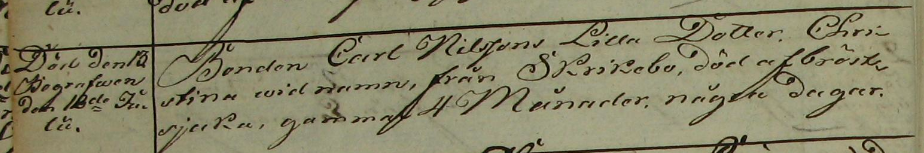 lii.
Död den 13
Begrafwen
den 18de Ju-
lii.
Bonden Carl Nilssons Lilla Dotter. Chri-
stina wid namn, från Skrikebo, död af bröst-
sjuka, gammal 4 Månader. några dagar.